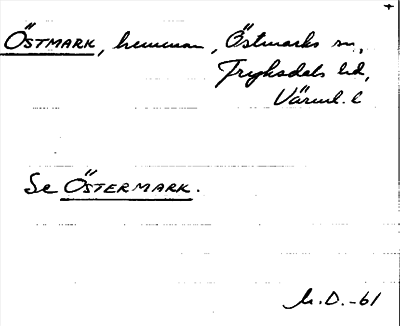 ÖSTMARK, hemman, Östmarks sn,
Fryksdals hd,
Värml. l
Se ÖSTERMARK.
M.D.-61